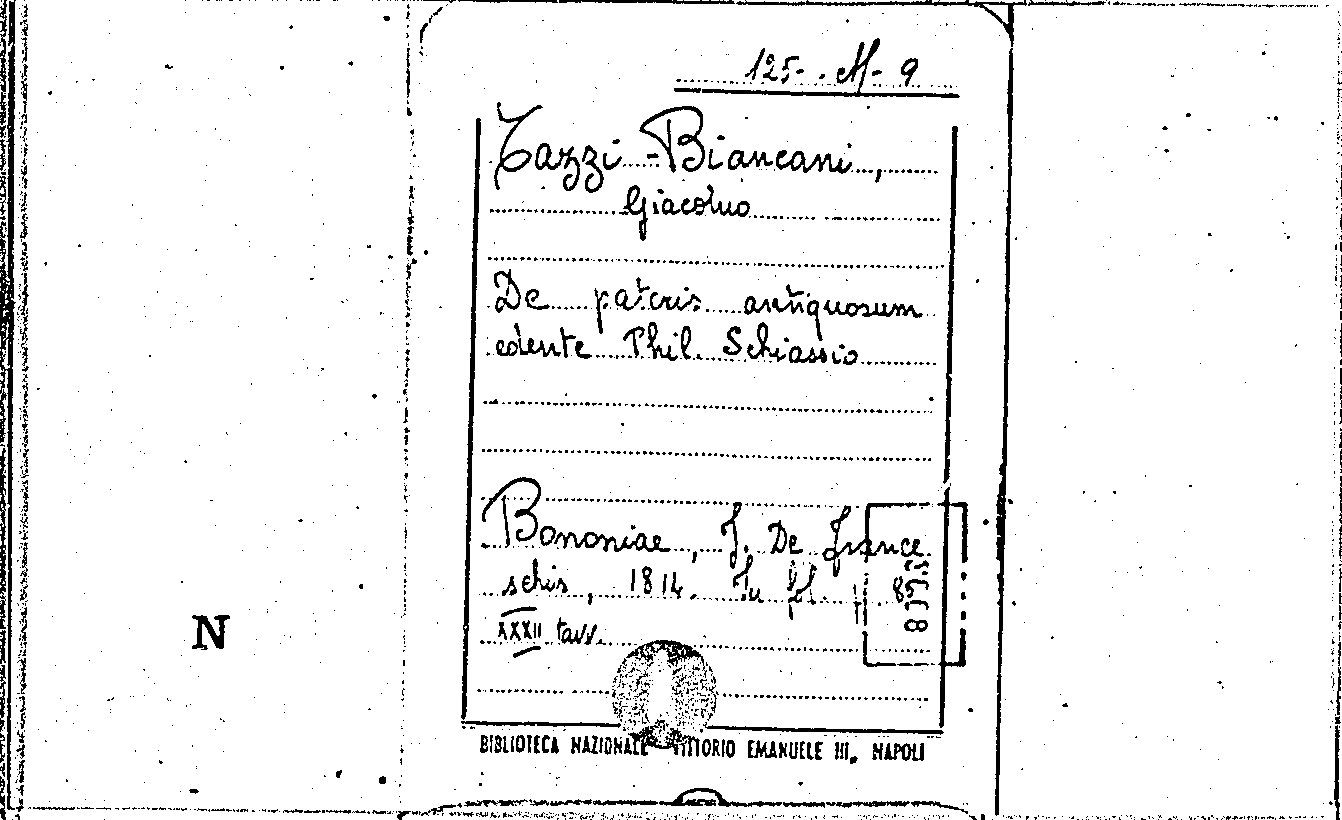 125-.M-9
Tazzi-Biancani,
Giacomo
De pateris antiquorum
edente Phil. Schiassio
Bononiae, J. De France
schis, 1814. In fol. p. 85
XXXII tavv.
N
BIBLIOTECA NAZIONALE VITTORIO EMANUELE III, NAPOLI